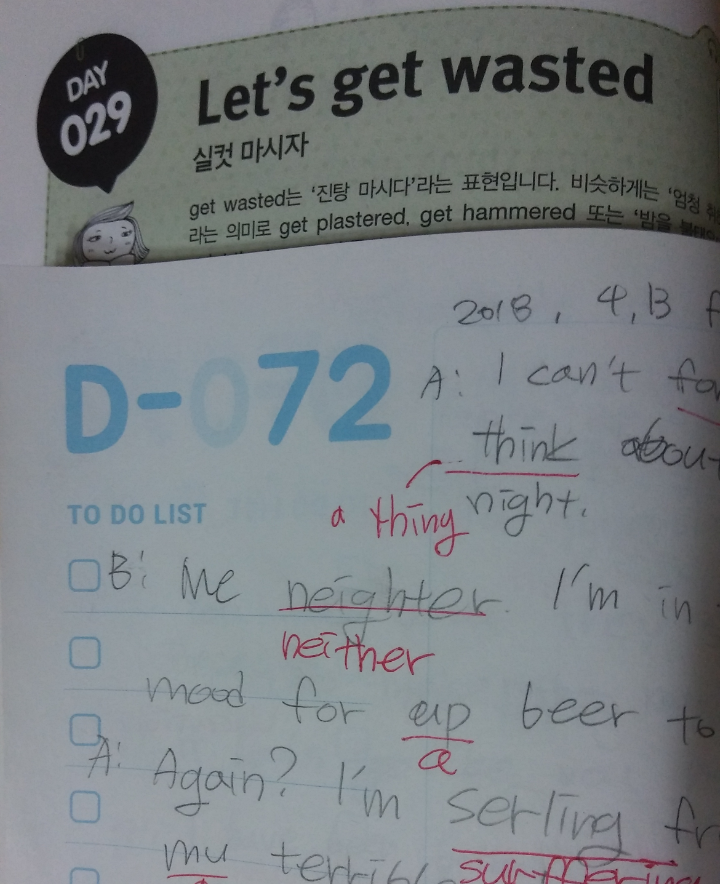 DAY
029
Let's get wasted
실컷 마시자
get wasted는 '진탕 마시다'라는 표현입니다. 비슷하게는 '엄청
라는 의미로 get plastered, get hammered 또는 '밤을
2018, 4, 13
D-072
A: I can't
think about
a thing night.
TO DO LIST
B: Me neighter. I'm in
neither
mood for up beer to
a
A: Again? I'm serling
my